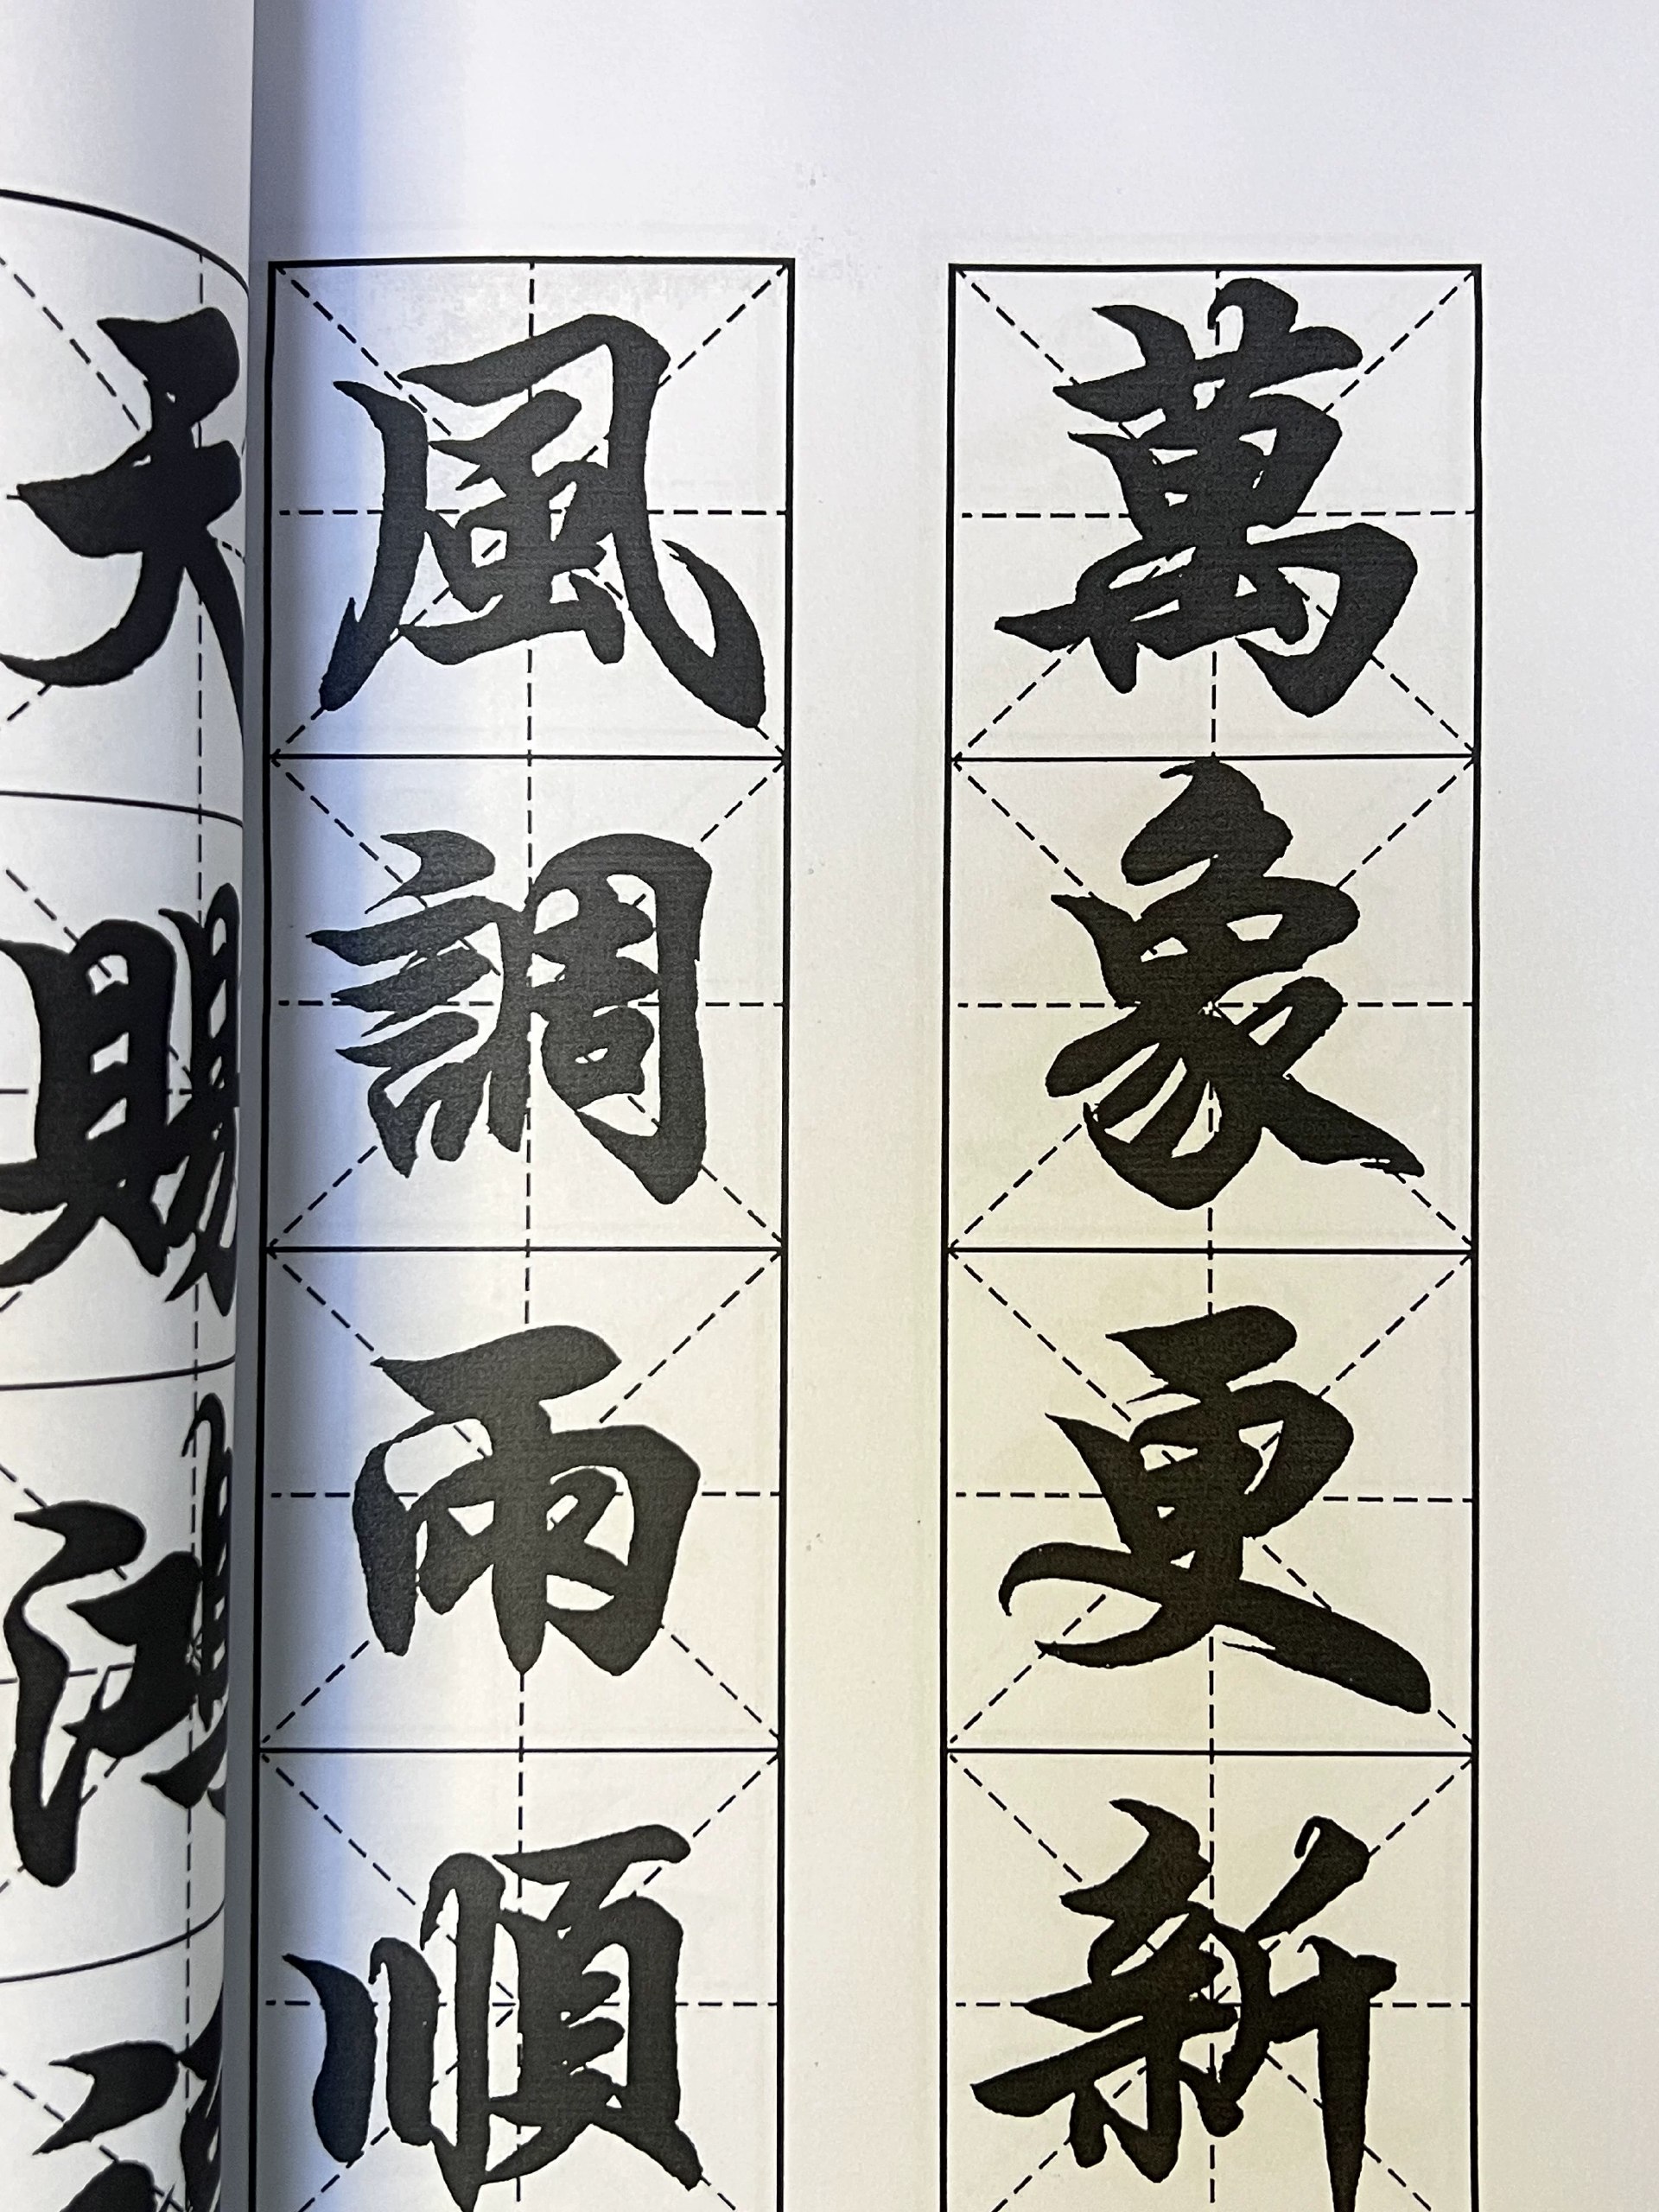 萬象更新
風調雨順
天賜鴻